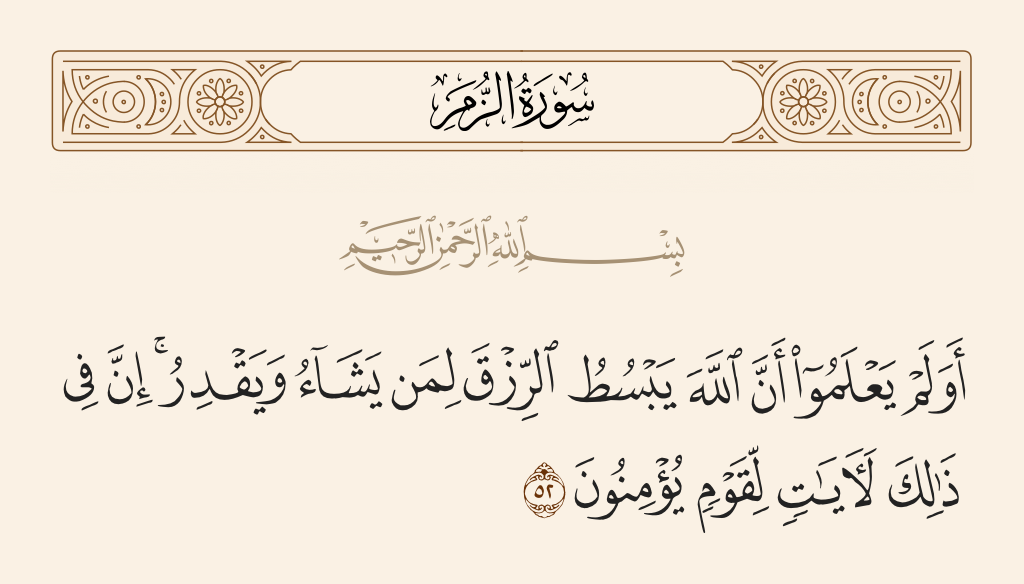 سُورَةُ الزُّمَرِ
بِسْمِ ٱللَّهِ ٱلرَّحْمَٰنِ ٱلرَّحِيمِ
أَوَلَمْ يَعْلَمُوٓا۟ أَنَّ ٱللَّهَ يَبْسُطُ ٱلرِّزْقَ لِمَن يَشَآءُ وَيَقْدِرُ ۚ إِنَّ فِى
ذَٰلِكَ لَـَٔايَـٰتٍ لِّقَوْمٍ يُؤْمِنُونَ ٥٢